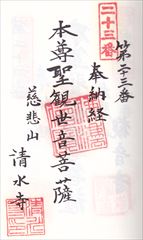 第二十三番
二十三番
奉納経
本尊聖観世音菩薩
慈悲山
清水寺